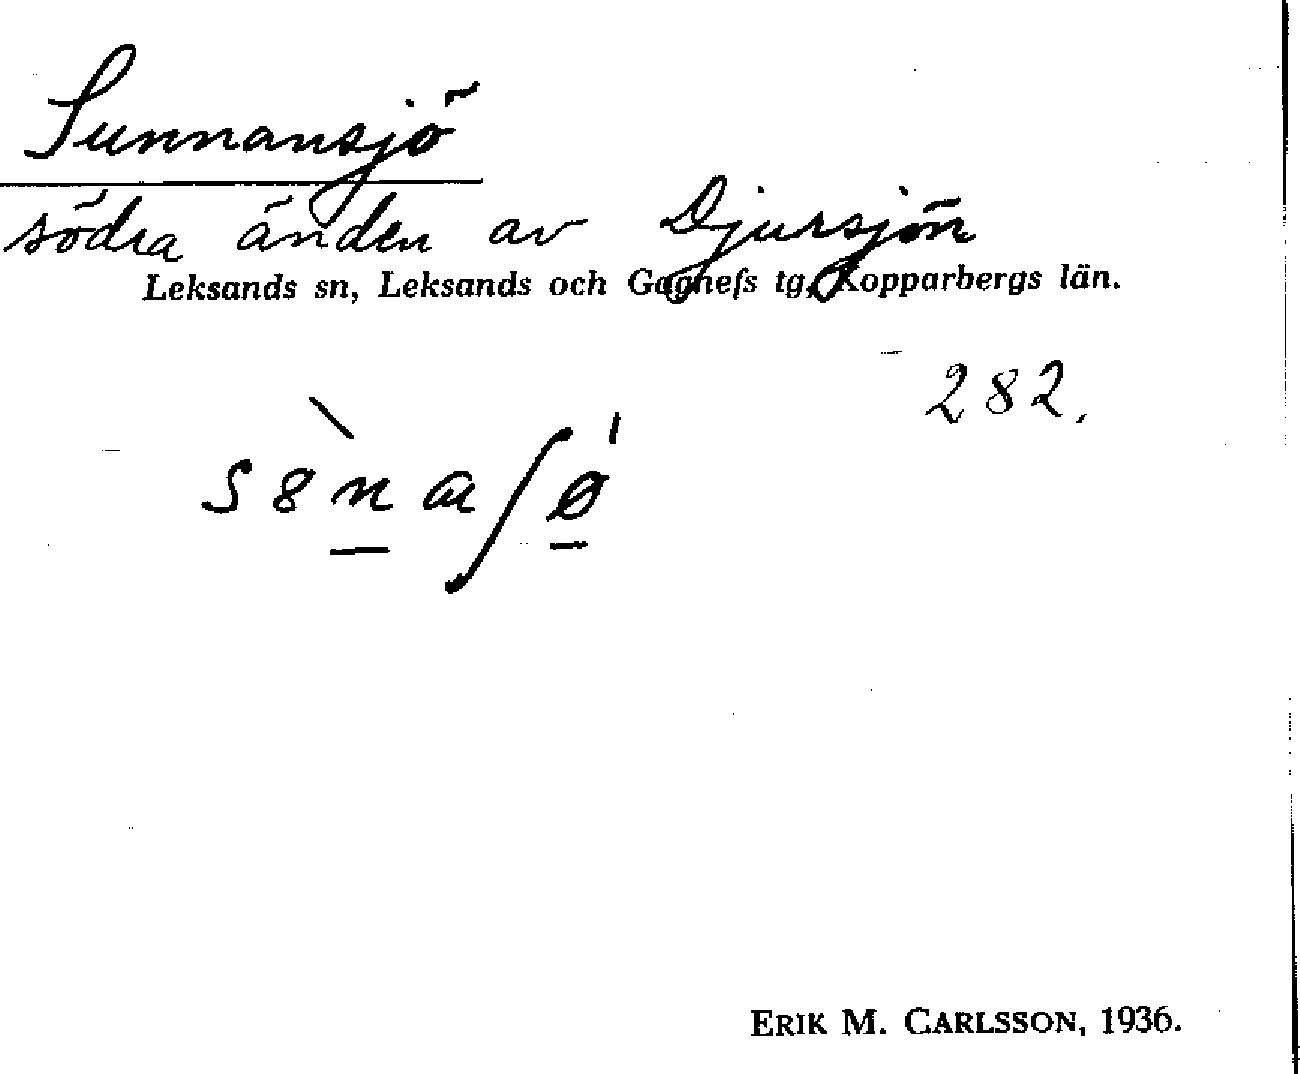 Sunnansjö
södra änden av Djursjön
Leksands sn, Leksands och Gagnefs tg, Kopparbergs län.
282.
s8̀naʃǿ
ERIK M. CARLSSON, 1936.